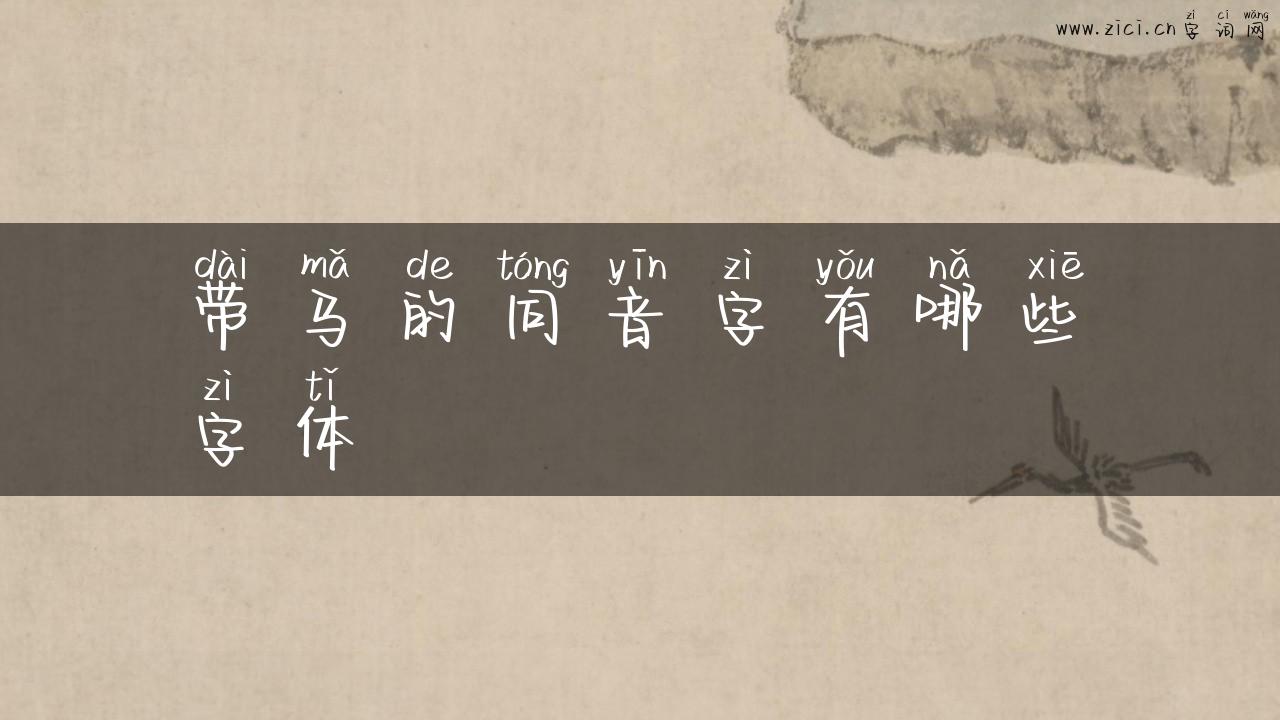 zì cí wǎng
www.zici.cn 字词网
dài mǎ de tóng yīn zì yǒu nǎ xiē
带马的同音字有哪些
zì tǐ
字体